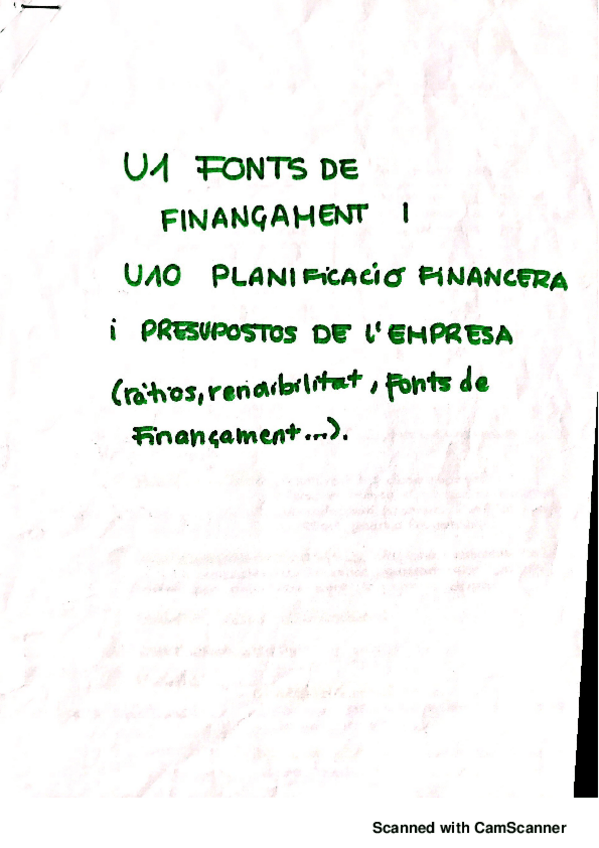 U1 FONTS DE
FINANÇAMENT I
U10 PLANIFICACIÓ FINANCERA
i PRESUPOSTOS DE L'EMPRESA
(ràtios, rendibilitat, fonts de
Finançament...).
Scanned with CamScanner